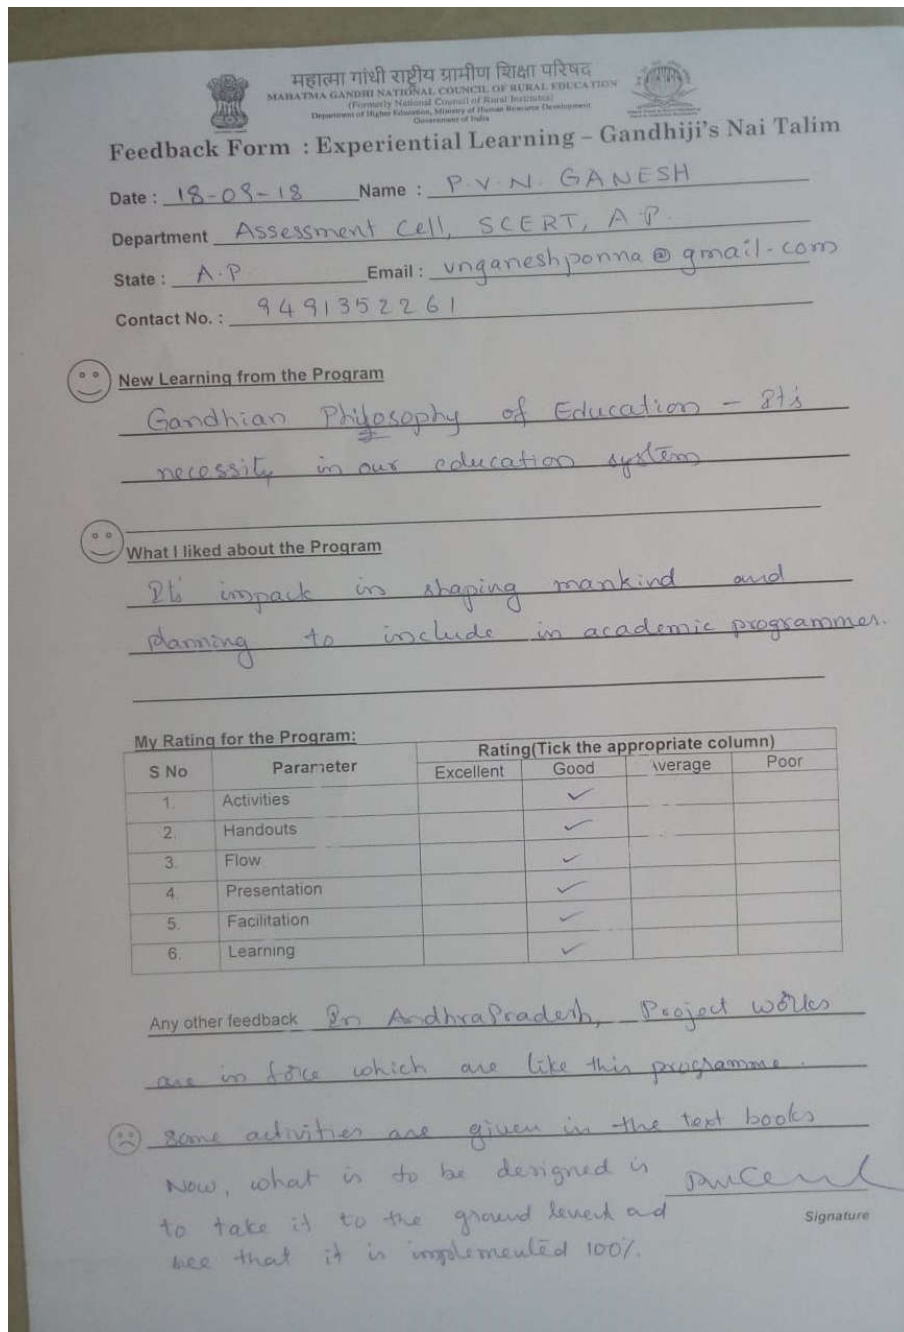 महात्मा गांधी राष्ट्रीय ग्रामीण शिक्षा परिषद
MAHATMA GANDHI NATIONAL COUNCIL OF RURAL EDUCATION
(Formerly National Council of Rural Institutes)
Department of Higher Education, Ministry of Human Resource Development
Government of India
Feedback Form : Experiential Learning – Gandhiji's Nai Talim
Date : 18-09-18 Name : P.V.N. GANESH
Department Assessment Cell, SCERT, A.P.
State : A.P. Email : vnganeshponna@gmail.com
Contact No. : 9491352261
New Learning from the Program
Gandhian Philosophy of Education – It's
necessity in our education system
What I liked about the Program
It's impack in shaping mankind and
planning to include in academic programmes.
My Rating for the Program:
S No Parameter Rating(Tick the appropriate column)
Excellent Good Average Poor
1. Activities ✓
2. Handouts ✓
3. Flow ✓
4. Presentation ✓
5. Facilitation ✓
6. Learning ✓
Any other feedback In AndhraPradesh, Project works
are in force which are like this programme.
some activities are given in the text books
Now, what is to be designed is
to take it to the ground level ad
Signature
see that it is implemented 100%.